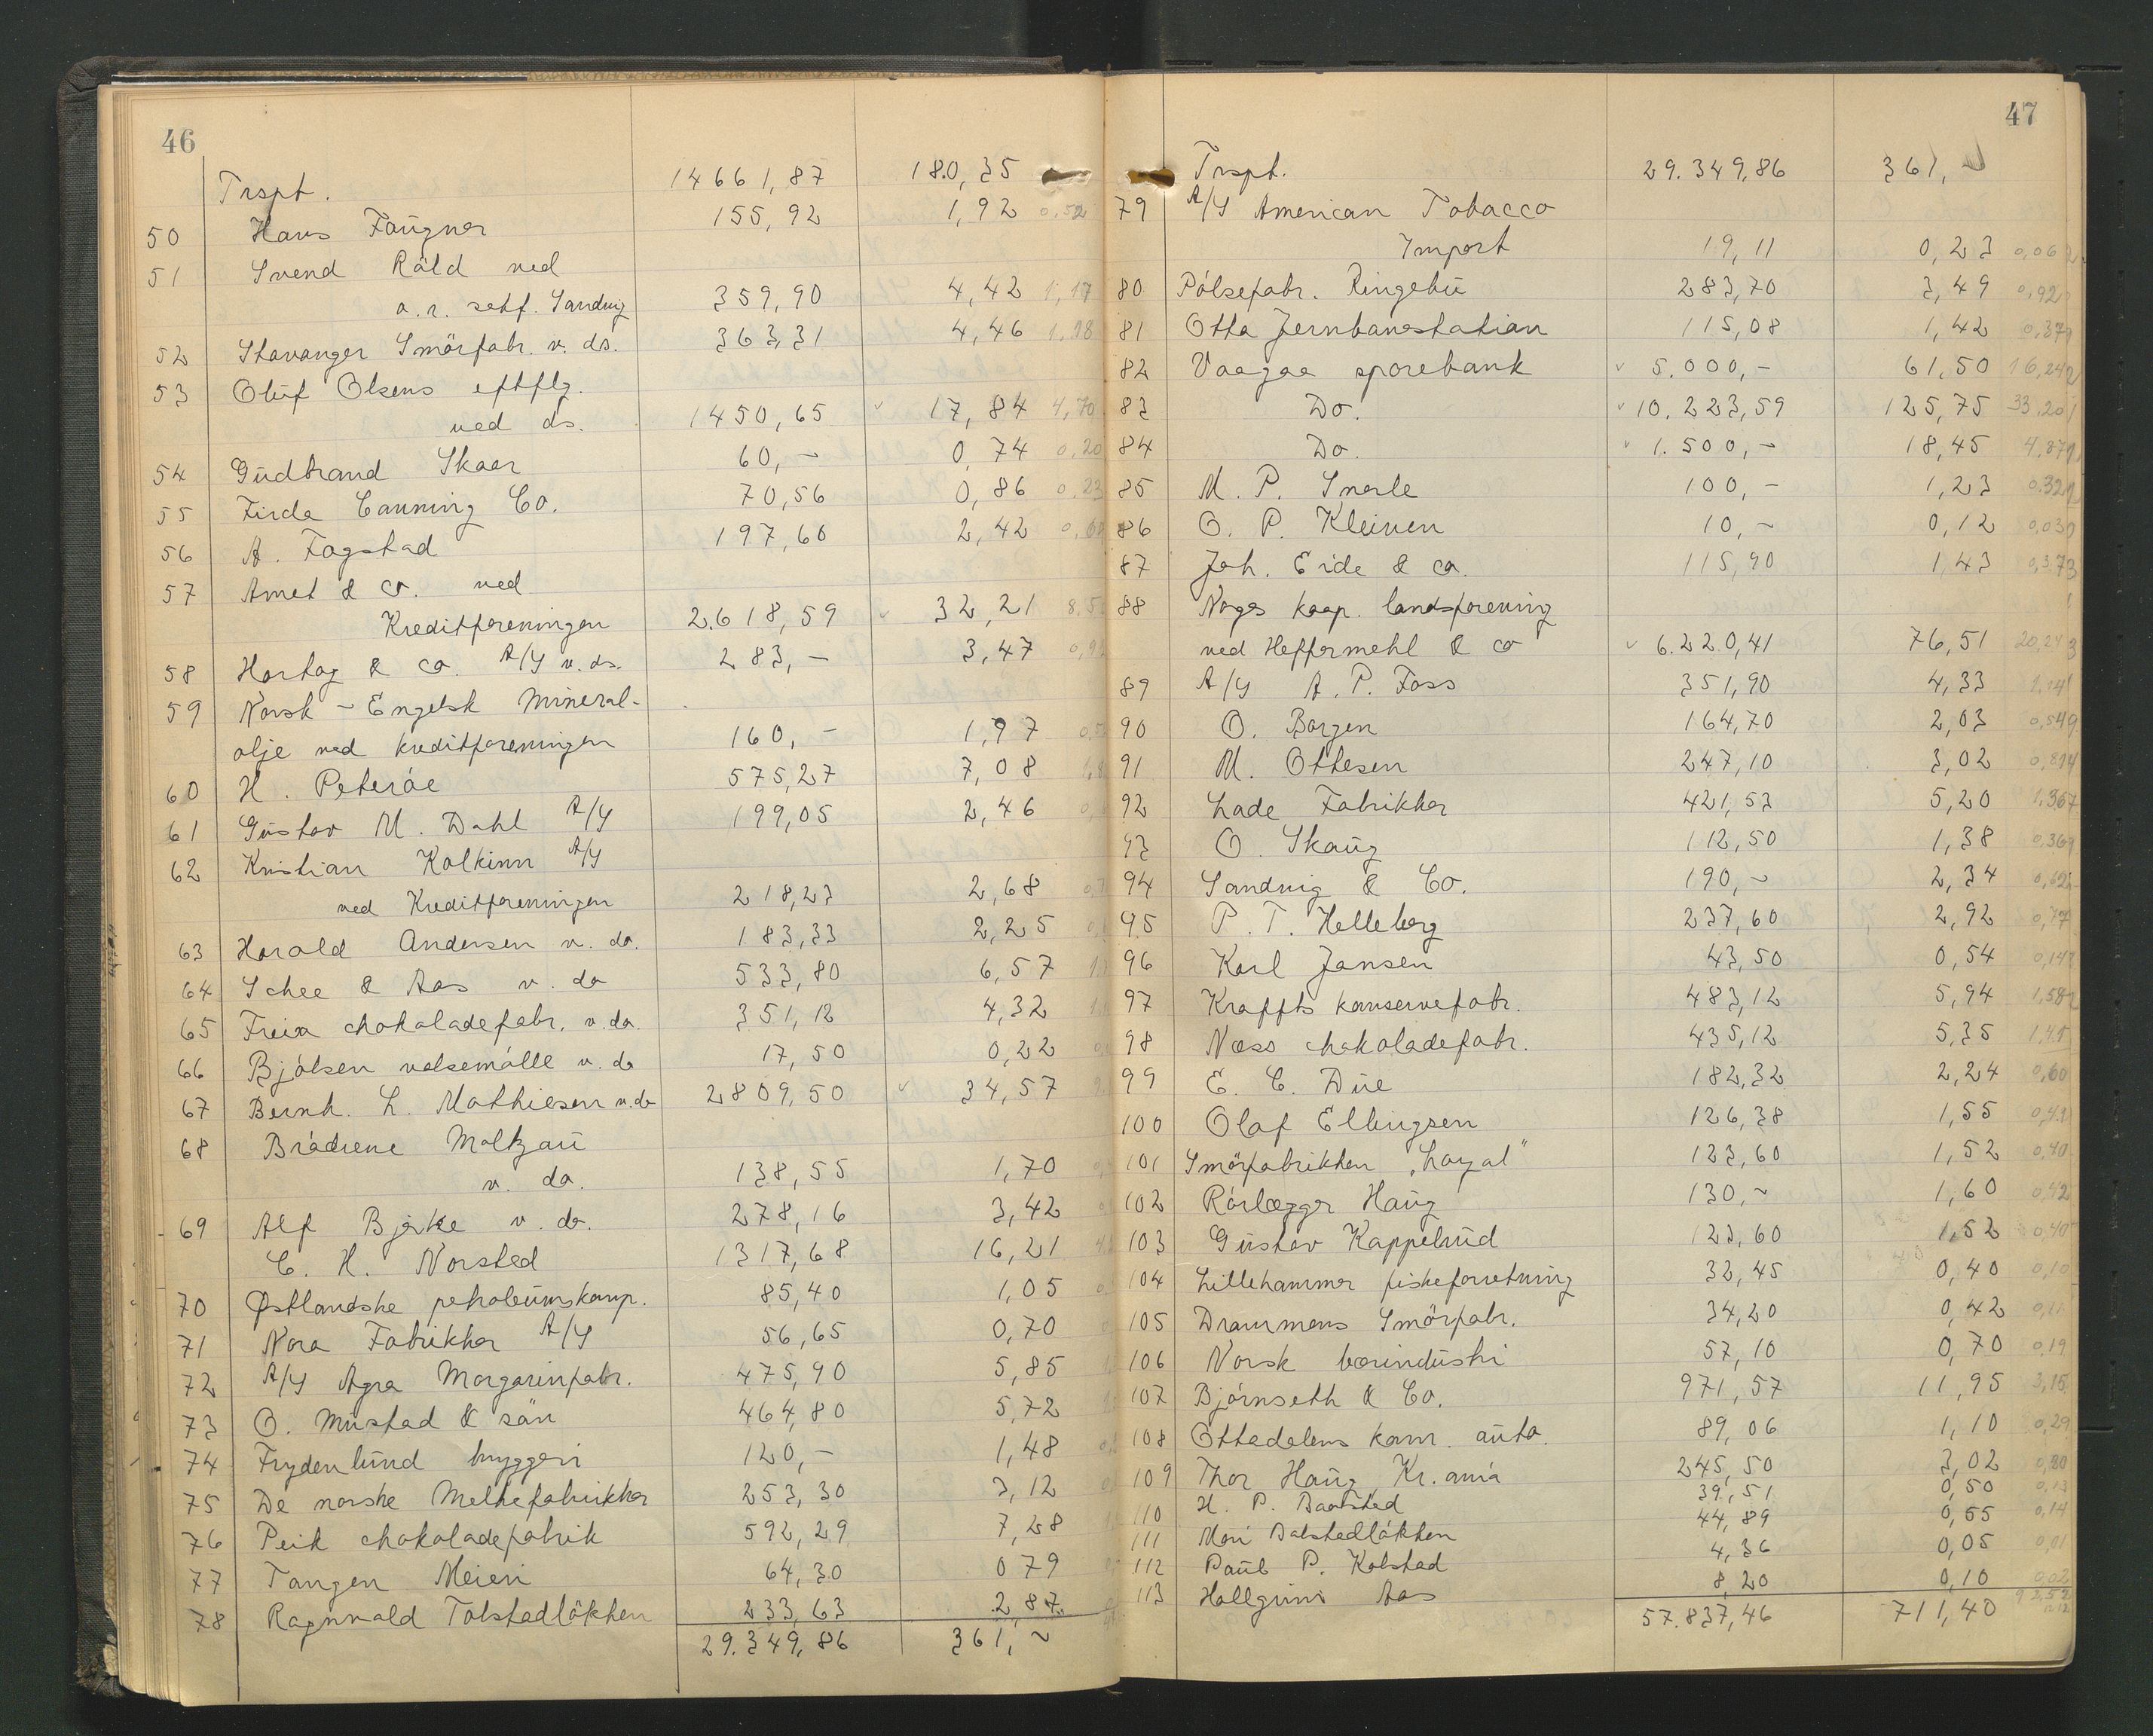 46
Trspt. 14661,87 180,35
50 Hans Faugner 155,92 1,92 0,52
51 Svend Råld ved
o.r. sakf. Sandvig 359,90 4,42 1,17
52 Stavanger Smörfabr. v. ds. 363,31 4,46 1,18
53 Oluf Olsens eftflg.
ved ds. 1450,65 17,84 4,70
54 Gudbrand Skaar 60,- 0,74 0,20
55 Firda Canning Co. 70,56 0,86 0,23
56 A. Fagstad 197,60 2,42
57 Amet & co. ved
Kreditforeningen 2.618,59 32,21
58 Hartog & co. A/S v. ds. 283,- 3,47
59 Norsk - Engelsk Mineral-
olje ved kreditforeningen 160,- 1,97
60 H. Peteröe 575,27 7,08
61 Gustav M. Dahl A/S 199,05 2,46
62 Kristian Kolkinn A/S
ved Kreditforeningen 218,23 2,68
63 Harald Andersen v. do. 183,33 2,25
64 Schee & Aas v. do 533,80 6,57
65 Freia chokoladefabr. v. do. 351,12 4,32
66 Bjölsen valsemölle v. do 17,50 0,22
67 Bernh. L. Mathiesen v. do 2809,50 34,57
68 Brödrene Maltzau
v. do. 138,55 1,70
69 Alf Bjerke v. do. 278,16 3,42
C. H. Norsted 1317,68 16,21
70 Østlandske petroleumskomp. 85,40 1,05
71 Nora Fabrikker A/S 56,65 0,70
72 A/S Agra Margarinfabr. 475,90 5,85
73 O. Mustad & sön 464,80 5,72
74 Frydenlund bryggeri 120,- 1,48
75 De norske Melkefabrikker 253,30 3,12
76 Peik chokoladefabrik 592,29 7,28
77 Tangen Meieri 64,30 0 79
78 Ragnvald Tolstadlökken 233,63 2,87
29.349,86 361,~
47
Trspt. 29.349,86 361,~
79 A/S American Tobacco
Import 19,11 0,23 0,06
80 Pölsefabr. Ringebu 283,70 3,49 0,92
81 Otta Jernbanestation 115,08 1,42 0,37
82 Vaagaa sparebank 5.000,- 61,50 16,24
83 Do. 10.223,59 125,75 33,20
84 Do. 1.500,~ 18,45 4,87
85 M. P. Snerle 100,- 1,23 0.32
86 O. P. Kleiven 10,~ 0,12 0,03
87 Joh. Eide & co. 115,90 1,43 0,373
88 Noges koop. landsforening
ved Heffermehl & co 6.220,41 76,51 20,2
89 A/S A. P. Foss 351,90 4,33 1,14
90 O. Borgen 164,70 2,03 0,549
91 M. Ottesen 247,10 3,02 0,814
92 Lade Fabrikker 421,53 5,20 1,367
93 O. Skaug 112,50 1,38 0,36
94 Sandvig & Co. 190,~ 2,34 0,62
95 P. T. Helleberg 237,60 2,92 0,77
96 Karl Jansen 43,50 0,54 0,14
97 Kraffts konservefabr. 483,12 5,94 1,58
98 Næss chokoladefabr. 435,12 5,35 1,45
99 E. C. Due 182,32 2,24 0,60
100 Olaf Ellingsen 126,38 1,55 0,41
101 Smörfabrikken „Loyal" 123,60 1,52 0,40
102 Rörlægger Haug 130,~ 1,60 0,42
103 Gustav Kappelrud 123,60 1,52 0,40
104 Lillehammer fiskeforretning 32,45 0,40 0,10
105 Drammens Smörfabr. 34,20 0,42 0,11
106 Norsk bærindustri 57,10 0,70 0,19
107 Björnseth & Co. 971,57 11,95 3,15
108 Ottadalens kom. auto. 89,06 1,10 0,29
109 Thor Haug Kr.ania 245,50 3,02 0,80
110 H. P. Baarstad 39,51 0,50 0,13
111 Mari Dalstadlökken 44,89 0,55 0,14
112 Paul P. Kolstad 4,36 0,05 0,01
113 Hallgrim Aas 8,20 0,10 0,02
57.837,46 711,40